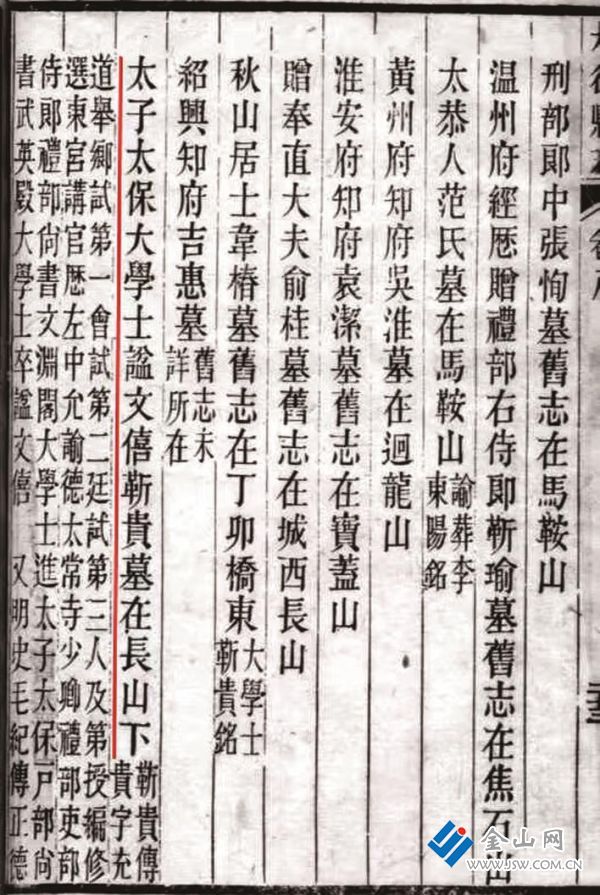 刑部郎中張恂墓舊志在馬鞍山
温州府經歷贈禮部右侍郎靳瑜墓舊志在焦石山
太恭人范氏墓在馬鞍山
諭葬李
東陽銘
黃州府知府吳淮墓在迴龍山
淮安府知府袁潔墓舊志在寶蓋山
贈奉直大夫俞桂墓舊志在城西長山
秋山居士韋椿墓舊志在丁卯橋東
大學士
靳貴銘
紹興知府吉惠墓
舊志未
詳所在
太子太保大學士謚文僖靳貴墓在長山下
靳貴傳
貴字充
道舉鄉試第一會試第二廷試第三人及第授編修
選東宮講官歷左中允諭德太常寺少卿禮部吏部
侍郎禮部尚書文淵閣大學士進太子太保戶部尚
書武英殿大學士卒謚文僖 又明史毛紀傳正德
金山网
www.JSW.com.cn